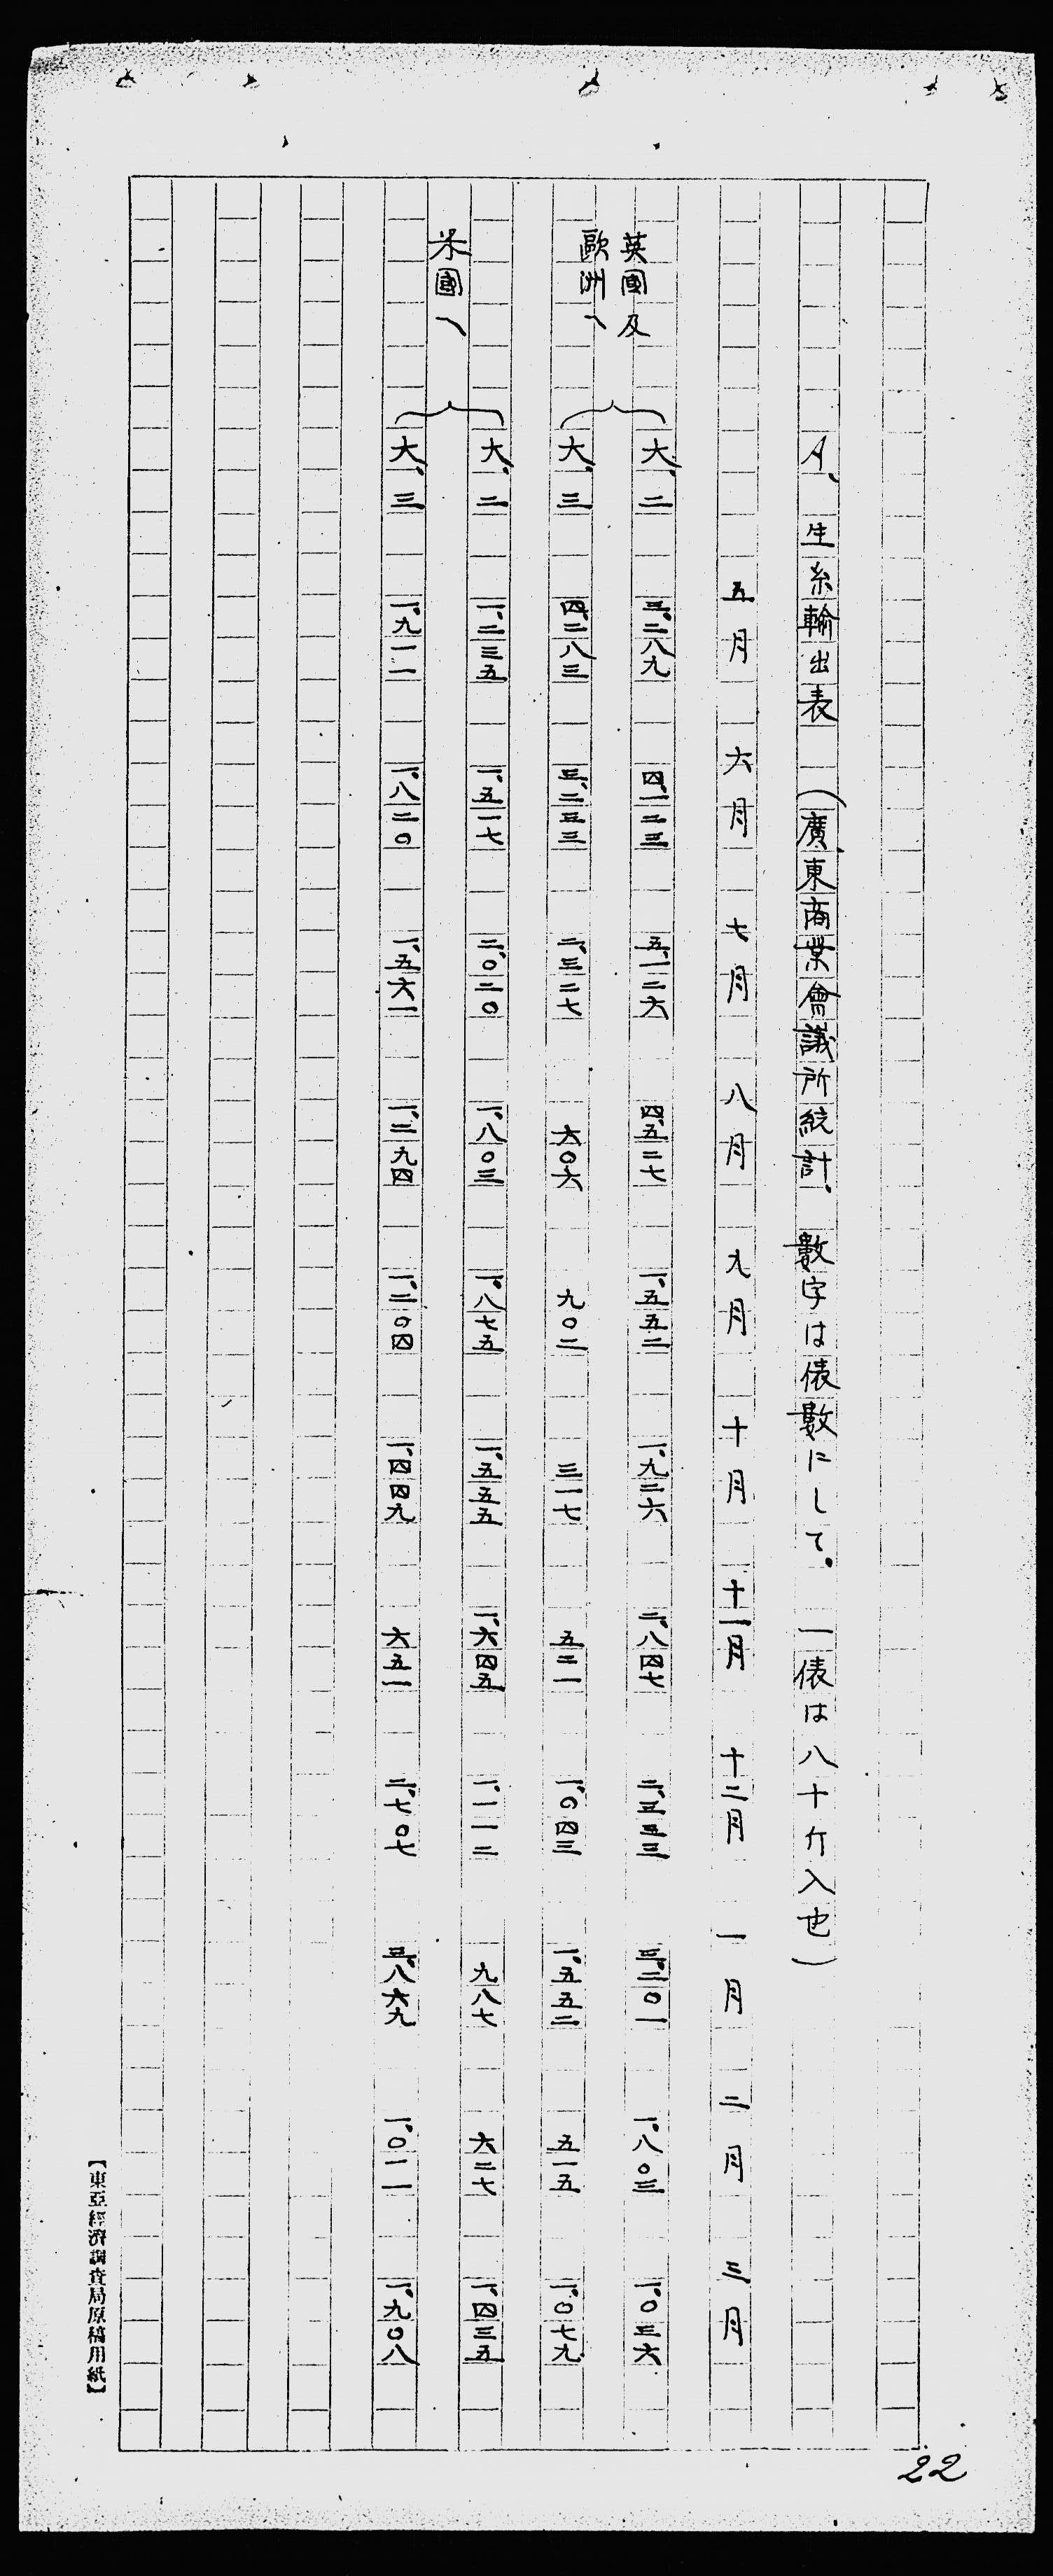 A、生糸輸出表　（廣東商業會議所統計．數字は俵數にして．一俵は八十斤入也）
五月　六月　七月　八月　九月　十月　十一月　十二月　一月　二月　三月
英國及
歐洲へ
大、二　三、二八九　四、一二三　五、一二六　四、五二七　一、五五二　一、九二六　二、八四七　二、五五三　三、二〇一　一、八〇三　一、〇三六
大、三　四、二八三　三、二五三　二、三二七　六〇六　九〇二　三一七　五二一　一、〇四三　一、五五二　五一五　一、〇七九
米國へ
大、二　一、二三五　一、五一七　二、〇二〇　一、八〇三　一、八七五　一、五五五　一、六四五　一、一一二　九八七　六二七　一、四三五
大、三　一、九一一　一、八二〇　一、五六一　一、二九四　一、二〇四　一、四四九　六五一　二、七〇七　三、八六九　一、〇一一　一、九〇八
【東亞經濟調査局原稿用紙】
22